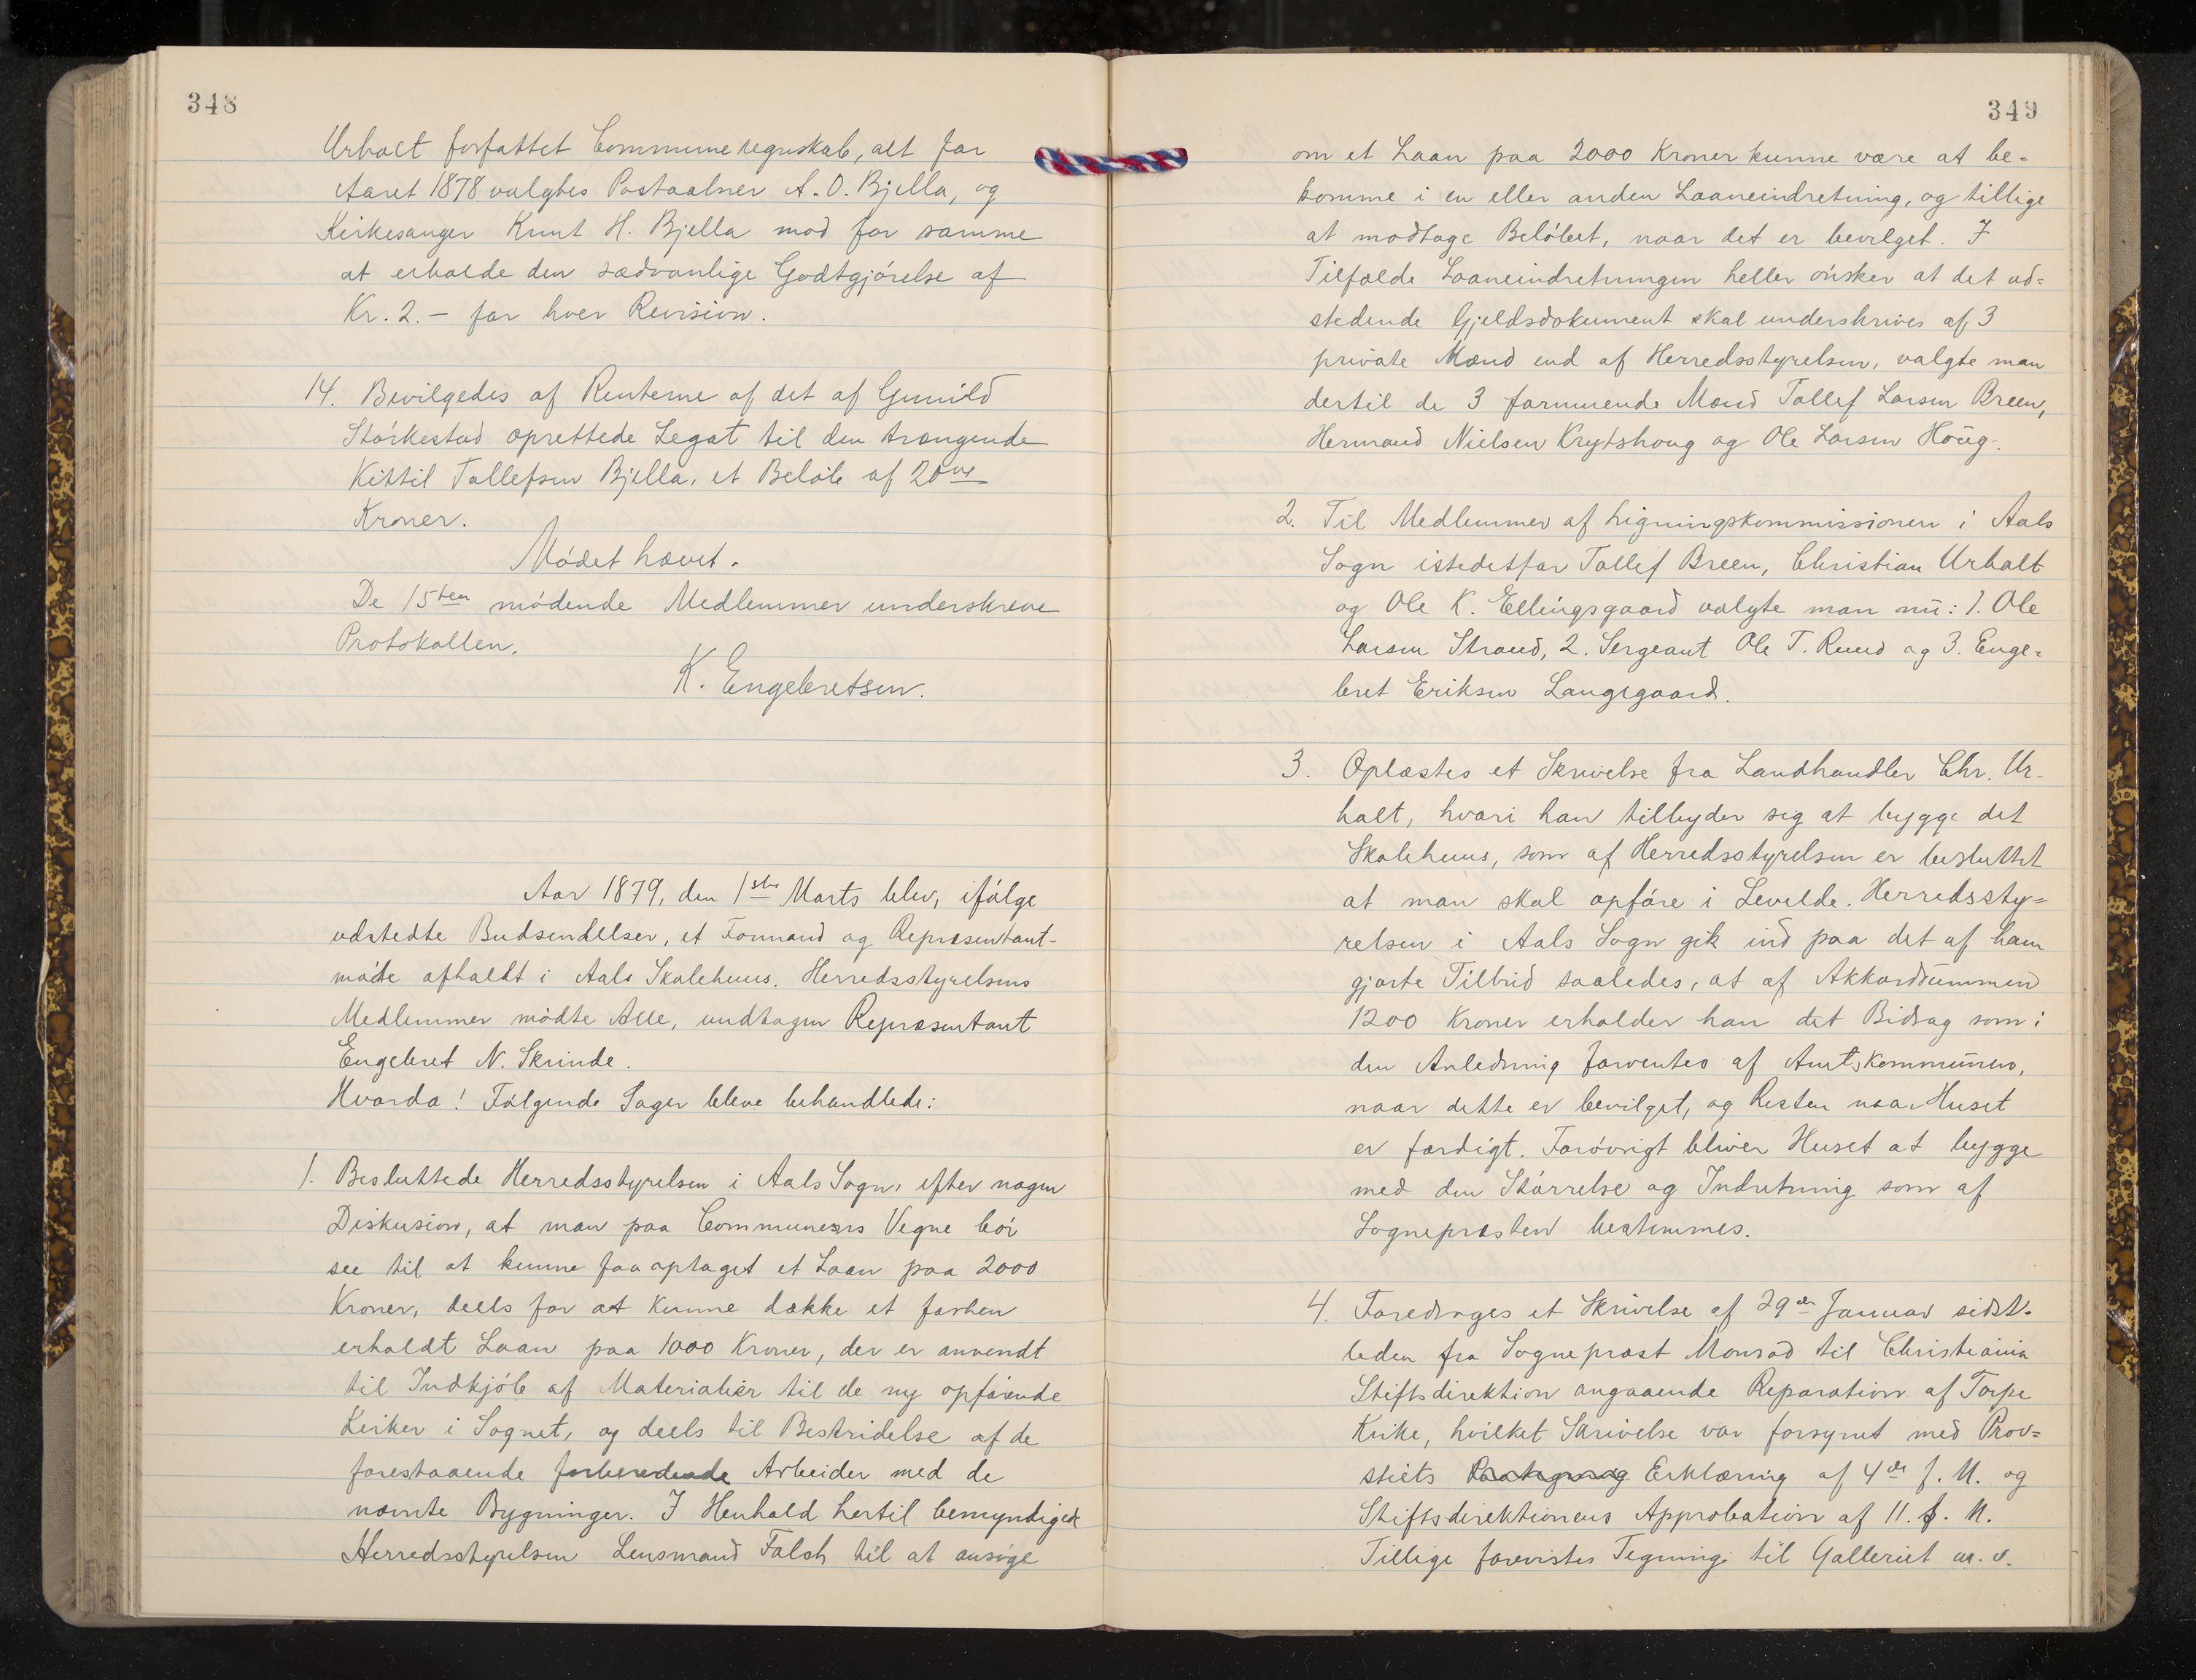 348
Urholt forfattet Communeregnskab, alt for
Aaret 1878 valgtes Postaabner A. O. Bjella, og
Kirkesanger Knut H. Bjella mod for samme
at erholde den sædvanlige Godtgjórelse af
Kr. 2.- for hver Revision.
14. Bevilgedes af Renterne af det af Gunild
Stórkestad oprettede Legat til den trængende
Kittil Tollefsen Bjella, et Belób af 20ve
Kroner.
Módet hævet.
De 15ten módende Medlemmer underskreve
Protokollen.
K. Engebretsen.
Aar 1879, den 1ste Marts blev, ifólge
udstedte Budsendelser, et Formand og Repræsentant-
móde afholdt i Aals Skolehuus. Herredsstyrelsens
Medlemmer módte Alle, undtagen Repræsentant
Engebret N. Skrinde.
Hvorda! Fólgende Sager bleve behandlede:
1. Besluttede Herredsstyrelsen i Aals Sogn, efter nogen
Diskusion, at man paa Communens Vegne bór
see til at kunne faa optaget et Laan paa 2000
Kroner, deels for at kunne dække et forhen
erholdt Laan paa 1000 Kroner, der er anvendt
til Indkjób af Materialier til de ny opfórende
Kirker i Sognet, og deels til Bestridelse af de
forestaaende forberedende Arbeider med de
nævnte Bygninger. I Henhold hertil bemyndiget
Herredsstyrelsen Lensmand Falch til at ansóge
349
om et Laan paa 2000 Kroner kunne være at be-
komme i en eller anden Laaneindretning, og tillige
at modtage Belóbet, naar det er bevilget. I
Tilfælde Laaneindretningen heller ónsker at det ud=
stedende Gjeldsdokument skal underskrives af 3
private Mænd end af Herredsstyrelsen, valgte man
dertil de 3 formuende Mænd Tollef Larsen Breen,
Hermand Nielsen Krytshoug og Ole Larsen Houg.
2. Til Medlemmer af Ligningskommissionen i Aals
Sogn istedetfor Tollef Breen, Christian Urholt
og Ole K. Ellingsgaard valgte man nu: 1. Ole
Larsen Strand, 2. Sergeant Ole T. Ruud og 3. Enge=
bret Eriksen Langegaard.
3. Oplæstes et Skrivelse fra Landhandler Chr. Ur-
holt, hvori han tilbyder sig at bygge det
Skolehuus, som af Herredsstyrelsen er besluttet
at man skal opfóre i Levelde. Herredssty=
relsen i Aals Sogn gik ind paa det af ham
gjorte Tilbud saaledes, at af Akkordsummen
1200 Kroner erholder han det Bidrag som i
den Anledning forventes af Amtskommunen,
naar dette er bevilget, og Resten naar Huset
er færdigt. Foróvrigt bliver Huset at bygge
med den Stórrelse og Indretning som af
Sognepræsten bestemmes.
4. Foredroges et Skrivelse af 29de Januar sidst-
leden fra Sognepræst Monrad til Christiania
Stiftsdirektion angaaende Reparation af Torpe
Kirke, hvilket Skrivelse var forsynet med Prov=
stiets Paategning Erklæring af 4de f. M. og
Stiftsdirektionens Approbation af 11. f. M.
Tillige forevistes Tegning til Galleriet m. v.